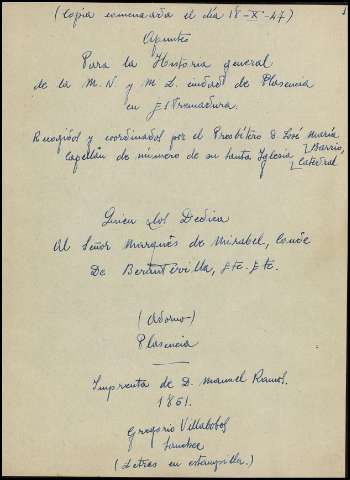 (Copia comenzada el día 18-X-47)
Apuntes
Para la Historia general
de la M. N. y M. L. ciudad de Plasencia
en Estremadura.
Recogidos y coordinados por el Presbítero D. José María
Barrio,
Capellán de número de su Santa Iglesia
Catedral
Quien los Dedica
Al Señor Marqués de Mirabel, Conde
De Berantevilla, Etc. Etc.
(Adorno)
Plasencia
Imprenta de D. Manuel Ramos.
1851.
Gregorio Villalobos
Sanchez
(Letras en estampilla.)